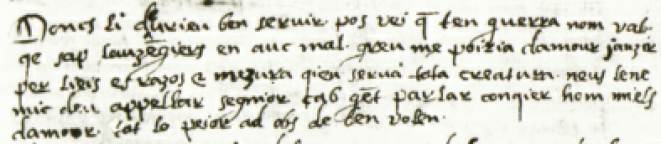 Doncs li deurieu ben servir pos vei q̃ ten guerra nom val
qe sap lauzẽgiers en auc mal. greu me poiria damour jauzir
per lieis es razos e mezura qieu serva tota creatura. neus lene
mic deu appellar segnior cab gẽt parlar conquier hom miels
damour. tot lo peior ad obs de ben volen.